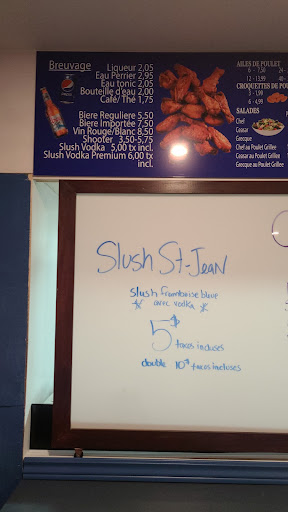 Breuvage
Liqueur 2,05
Eau Perrier 2,95
Eau tonic 2,05
Bouteille d'eau 2,00
Café/ Thé 1,75
Biere Reguliere 5,50
Biere Importée 7,50
Vin Rouge/Blanc 8,50
Shoofer 3,50-5,75
Slush Vodka 5,00 tx incl.
Slush Vodka Premium 6,00 tx incl.
AILES DE POULET
6 - 7,50 24
12 - 13,99 40
CROQUETTES DE POU
3 - 1,99
6 - 4,99
SALADES
Chef
Ceasar
Grecque
Chef au Poulet Grillee
Ceasar au Poulet Grillee
Grecque au Poulet Grillee
Slush St-Jean
slush framboise bleue
avec vodka
5$
taxes incluses
double 10$ taxes incluses